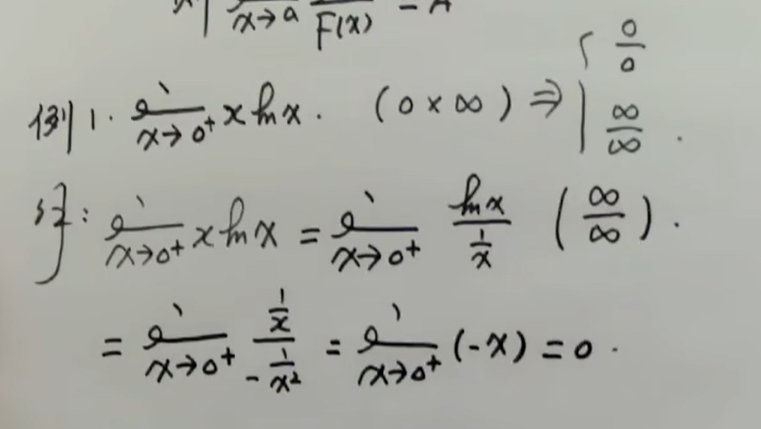 lim x→a f(x)/F(x) = A
例1. lim x→0⁺ x ln x. (0×∞) ⇒ { 0/0 ∞/∞ .
解: lim x→0⁺ x ln x = lim x→0⁺ ln x / (1/x) (∞/∞).
= lim x→0⁺ (1/x) / (-1/x²) = lim x→0⁺ (-x) = 0.